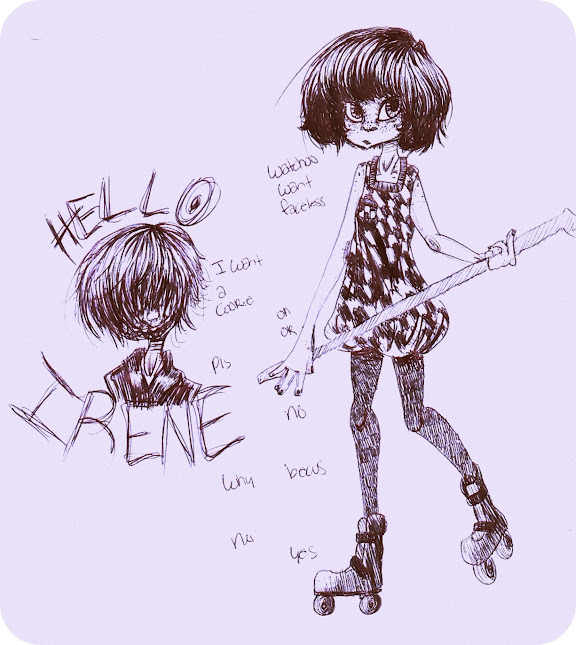 HELLO
IRENE
watchoo
want
faceless
I want
a
cookie
oh
ok
pls
no
why
becus
no
yes